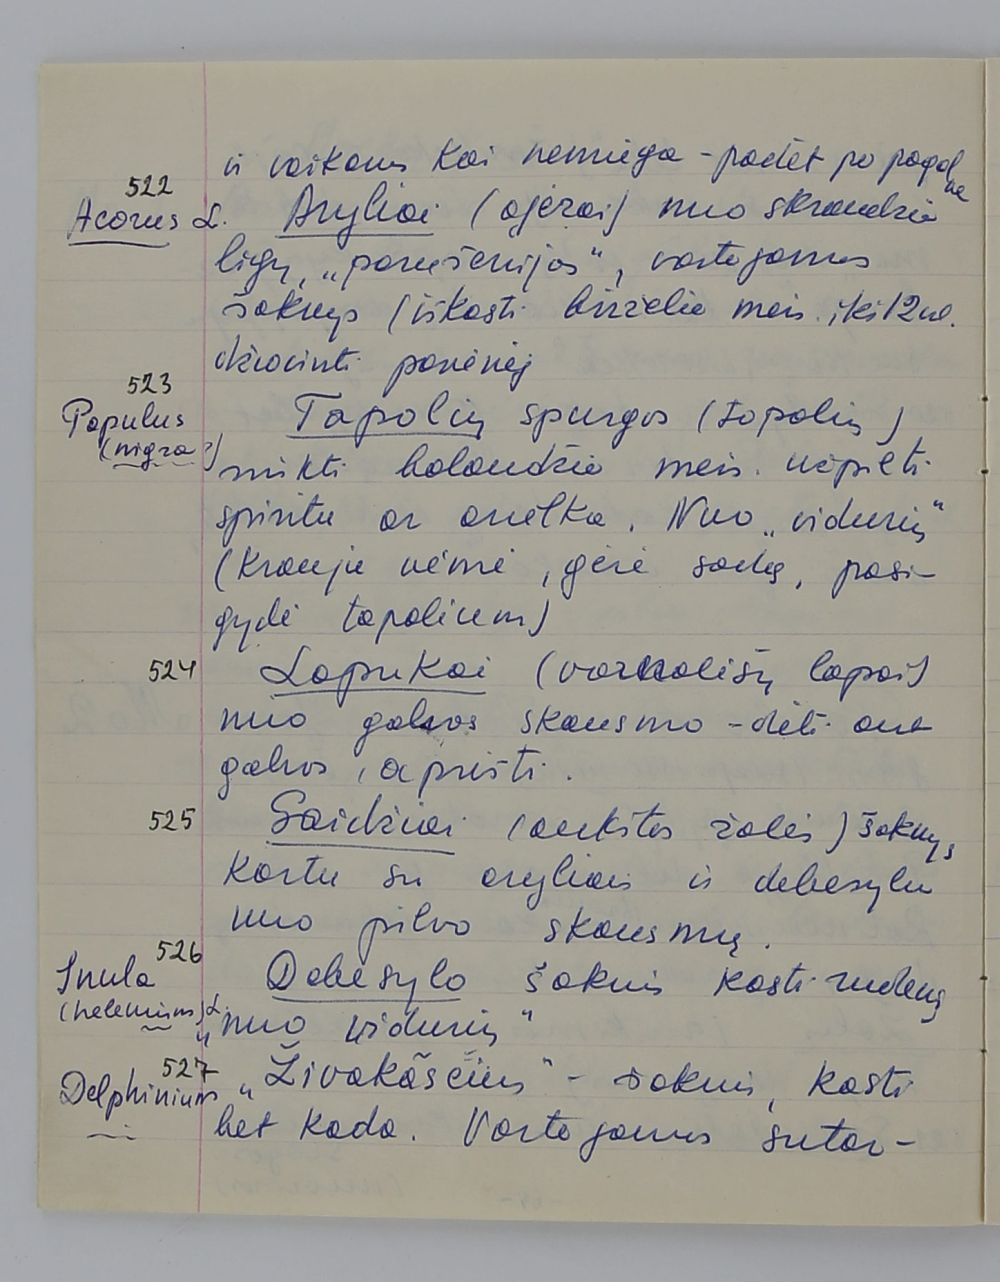 ir vaikams kai nemiega - padėt po pagalve
522
Acorus L. Aryliai (ajerai) nuo skrandžio
ligų, „parušenijos“, vartojamos
šaknys (iškasti birželio mėn. iki 12 val.
džiovinti pavėnėj
523
Populus Tapolių spurgos (topolių)
(nigra?)
rinkti balandžio mėn. užpilti
spiritu ar arielka. Nuo „vidurių“
(krauju vėmė, gėrė sodą, pasi-
gydė tapolium)
524 Lapukai (varnalėšų lapai)
nuo galvos skausmo - dėti ant
galvos, aprišti.
525 Gaidžiai (aukštos žolės) šaknys
kartu su aryliais ir debesylu
nuo pilvo skausmų.
526
Inula Debesylo šaknis kasti rudenį
(helenium) L. nuo „vidurių“
527
Delphinium „Živakāsčius“ - šaknis, kasti
bet kada. Vartojamos sutar-